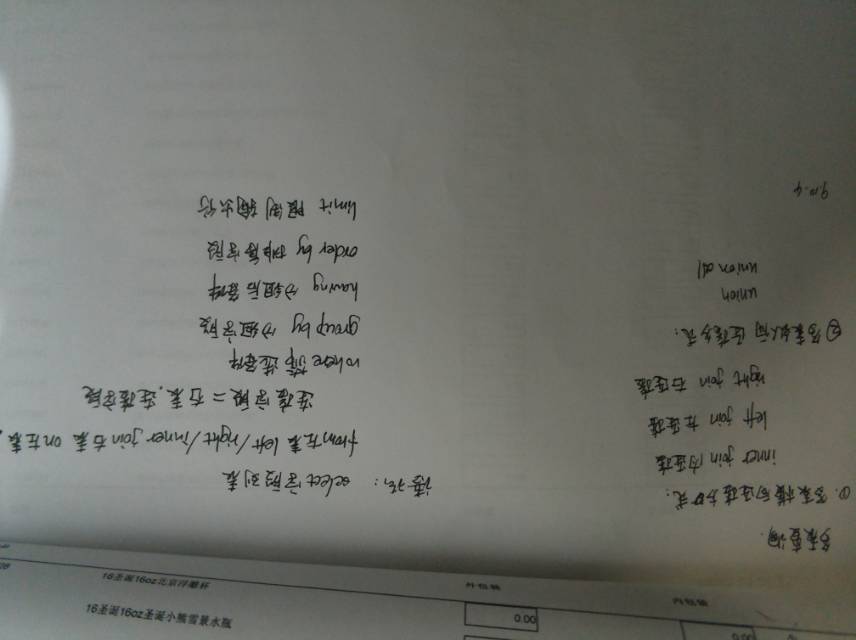 多表查询.
①. 多表横向连接方式:
inner join 内连接
left join 左连接
right join 右连接
②多表纵向连接方式:
union
union all
9.10.4
语法: select 字段列表
from 左表 left/right/inner join 右表 on 左表.
连接字段 = 右表.连接字段
where 筛选条件
group by 分组字段
having 分组后条件
order by 排序字段
limit 限制输出行
16圣诞16oz北京浮雕杯
外包装
内包装
16圣诞16oz圣诞小熊雪景水瓶
0.00
0.00